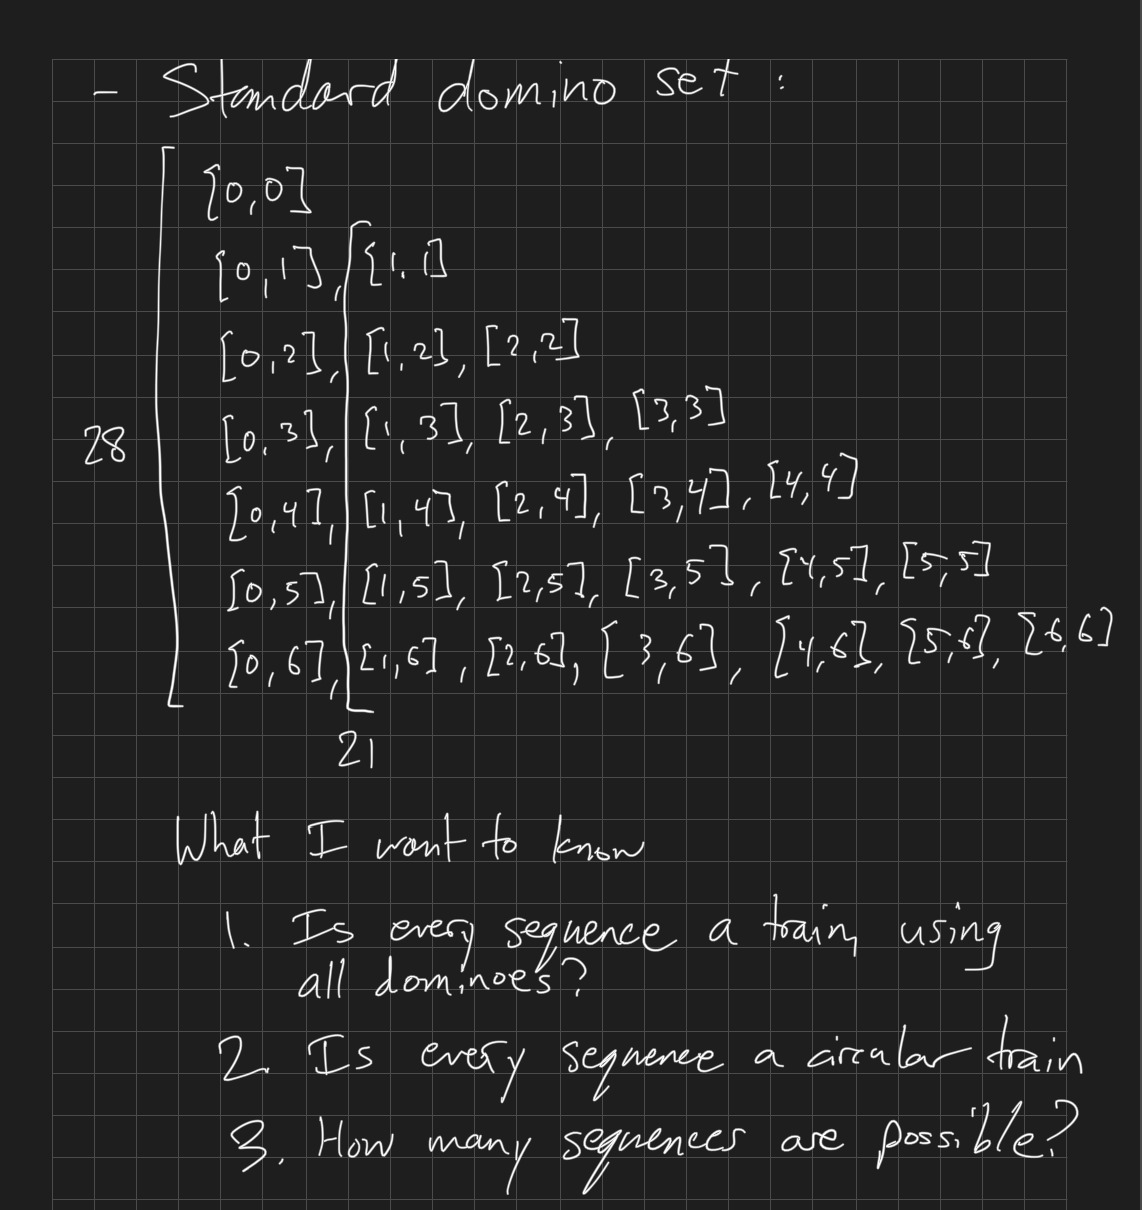 - Standard domino set :
[0,0]
[0,1], [1,1]
[0,2], [1,2], [2,2]
[0,3], [1,3], [2,3], [3,3]
28
[0,4], [1,4], [2,4], [3,4], [4,4]
[0,5], [1,5], [2,5], [3,5], [4,5], [5,5]
[0,6], [1,6], [2,6], [3,6], [4,6], [5,6], [6,6]
21
What I want to know
1. Is every sequence a train, using
all dominoes?
2. Is every sequence a circular train
3. How many sequences are possible?